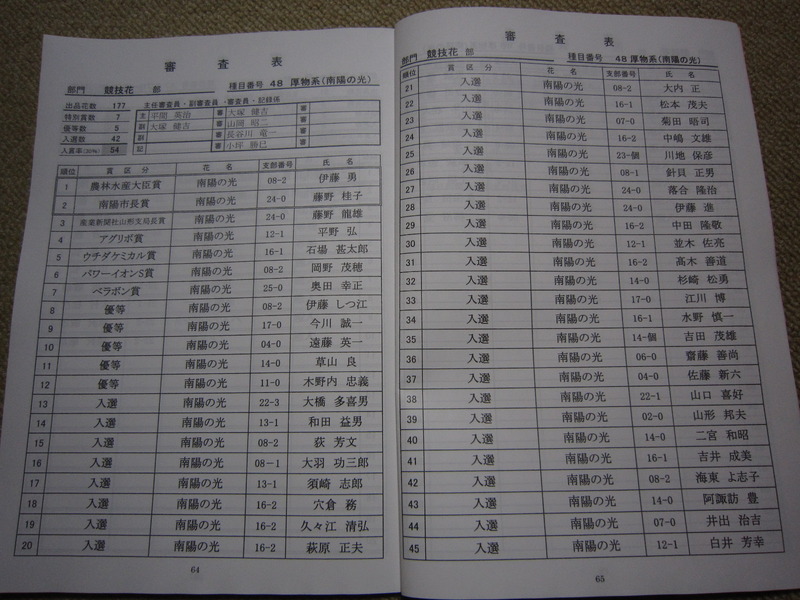 審査表
部門 競技花 部 種目番号 48 厚物系(南陽の光)
出品花数 177 主任審査員・副審査員・審査員・記録係
特別賞数 7 主 平間 英治 審 大塚 健吉 審
優等数 5 副 大塚 健吉 審 山岡 昭二 審
入選数 42 副 審 長谷川 竜一 審
入賞率(30%) 54 記 審 小坪 勝巳 審
順位 賞区分 花名 支部番号 氏名
1 農林水産大臣賞 南陽の光 08-2 伊藤 勇
2 南陽市長賞 南陽の光 24-0 藤野 桂子
3 産業新聞社山形支局長賞 南陽の光 24-0 藤野 龍雄
4 アグリボ賞 南陽の光 12-1 平野 弘
5 ウチダケミカル賞 南陽の光 16-1 石場 甚太郎
6 パワーイオンS賞 南陽の光 08-2 岡野 茂穂
7 ベラボン賞 南陽の光 25-0 奥田 幸正
8 優等 南陽の光 08-2 伊藤 しつ江
9 優等 南陽の光 17-0 今川 誠一
10 優等 南陽の光 04-0 遠藤 英一
11 優等 南陽の光 14-0 草山 良
12 優等 南陽の光 11-0 木野内 忠義
13 入選 南陽の光 22-3 大橋 多喜男
14 入選 南陽の光 13-1 和田 益男
15 入選 南陽の光 08-2 荻 芳文
16 入選 南陽の光 08-1 大羽 功三郎
17 入選 南陽の光 13-1 須崎 志郎
18 入選 南陽の光 16-2 穴倉 務
19 入選 南陽の光 16-2 久々江 清弘
20 入選 南陽の光 16-2 萩原 正夫
64
審査表
部門 競技花 部 種目番号 48 厚物系(南陽の光)
順位 賞区分 花名 支部番号 氏名
21 入選 南陽の光 08-2 大内 正
22 入選 南陽の光 16-1 松本 茂夫
23 入選 南陽の光 07-0 菊田 昭司
24 入選 南陽の光 16-2 中嶋 文雄
25 入選 南陽の光 23-個 川地 保彦
26 入選 南陽の光 08-1 針貝 正男
27 入選 南陽の光 24-0 落合 隆治
28 入選 南陽の光 24-0 伊藤 進
29 入選 南陽の光 16-2 中田 隆敬
30 入選 南陽の光 12-1 並木 佐亮
31 入選 南陽の光 16-2 高木 善道
32 入選 南陽の光 14-0 杉崎 松勇
33 入選 南陽の光 17-0 江川 博
34 入選 南陽の光 16-1 水野 慎一
35 入選 南陽の光 14-個 吉田 茂雄
36 入選 南陽の光 06-0 齋藤 善尚
37 入選 南陽の光 04-0 佐藤 新六
38 入選 南陽の光 22-1 山口 喜好
39 入選 南陽の光 02-0 山形 邦夫
40 入選 南陽の光 14-0 二宮 和昭
41 入選 南陽の光 16-1 吉井 成美
42 入選 南陽の光 08-2 海東 よ志子
43 入選 南陽の光 14-0 阿諏訪 豊
44 入選 南陽の光 07-0 井出 治吉
45 入選 南陽の光 12-1 白井 芳幸
65